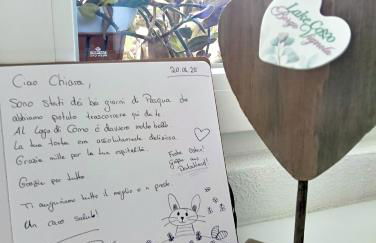 20.04.25
Ciao Chiara,
Sono stati dei bei giorni di Pasqua che
abbiamo potuto trascorrere qui da te.
Al Lago di Como è davvero molto bello.
La tua torta era assolutamente deliziosa.
Grazie mille per la tua ospitalità.
Grazie per tutto
Ti auguriamo tutto il meglio e a presto
Un caro saluto!
Frohe Ostern!
Deutschland!
Lake Como